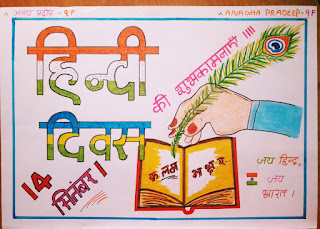 अनघा प्रदीप - 9 F
ANAGHA PRADEEP - 9F
हिन्दी
दिवस
की शुभकामनाएँ !!!
14
सितंबर !
क लम
जय हिन्द,
जय
भारत !